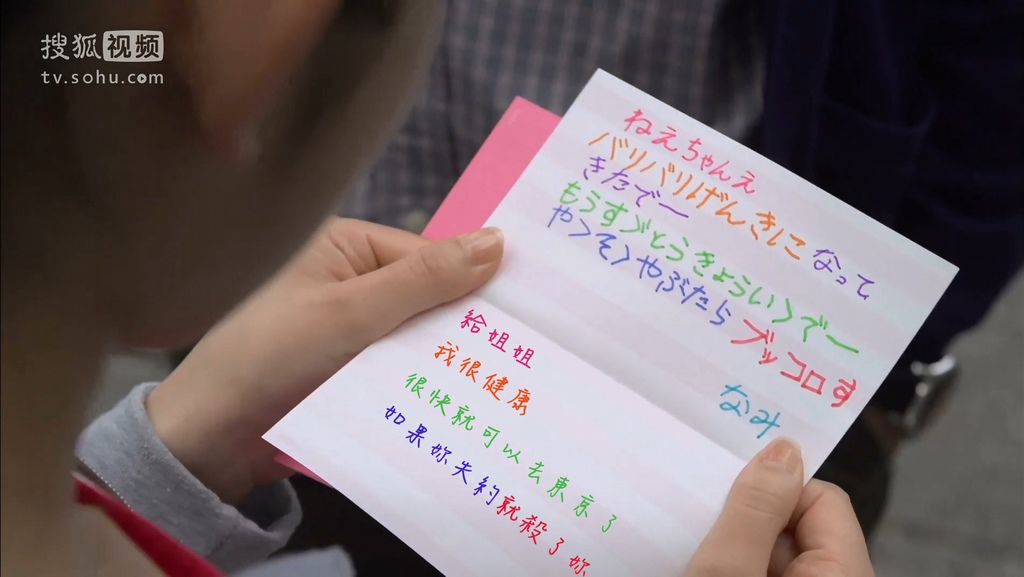 搜狐视频
tv.sohu.com
ねえちゃんえ
バリバリげんきになって
きたでー
もうすぐとうきょういくでー
やくそくやぶたら ブッコロす
なみ
給姐姐
我很健康
很快就可以去東京了
如果妳失約就殺了妳